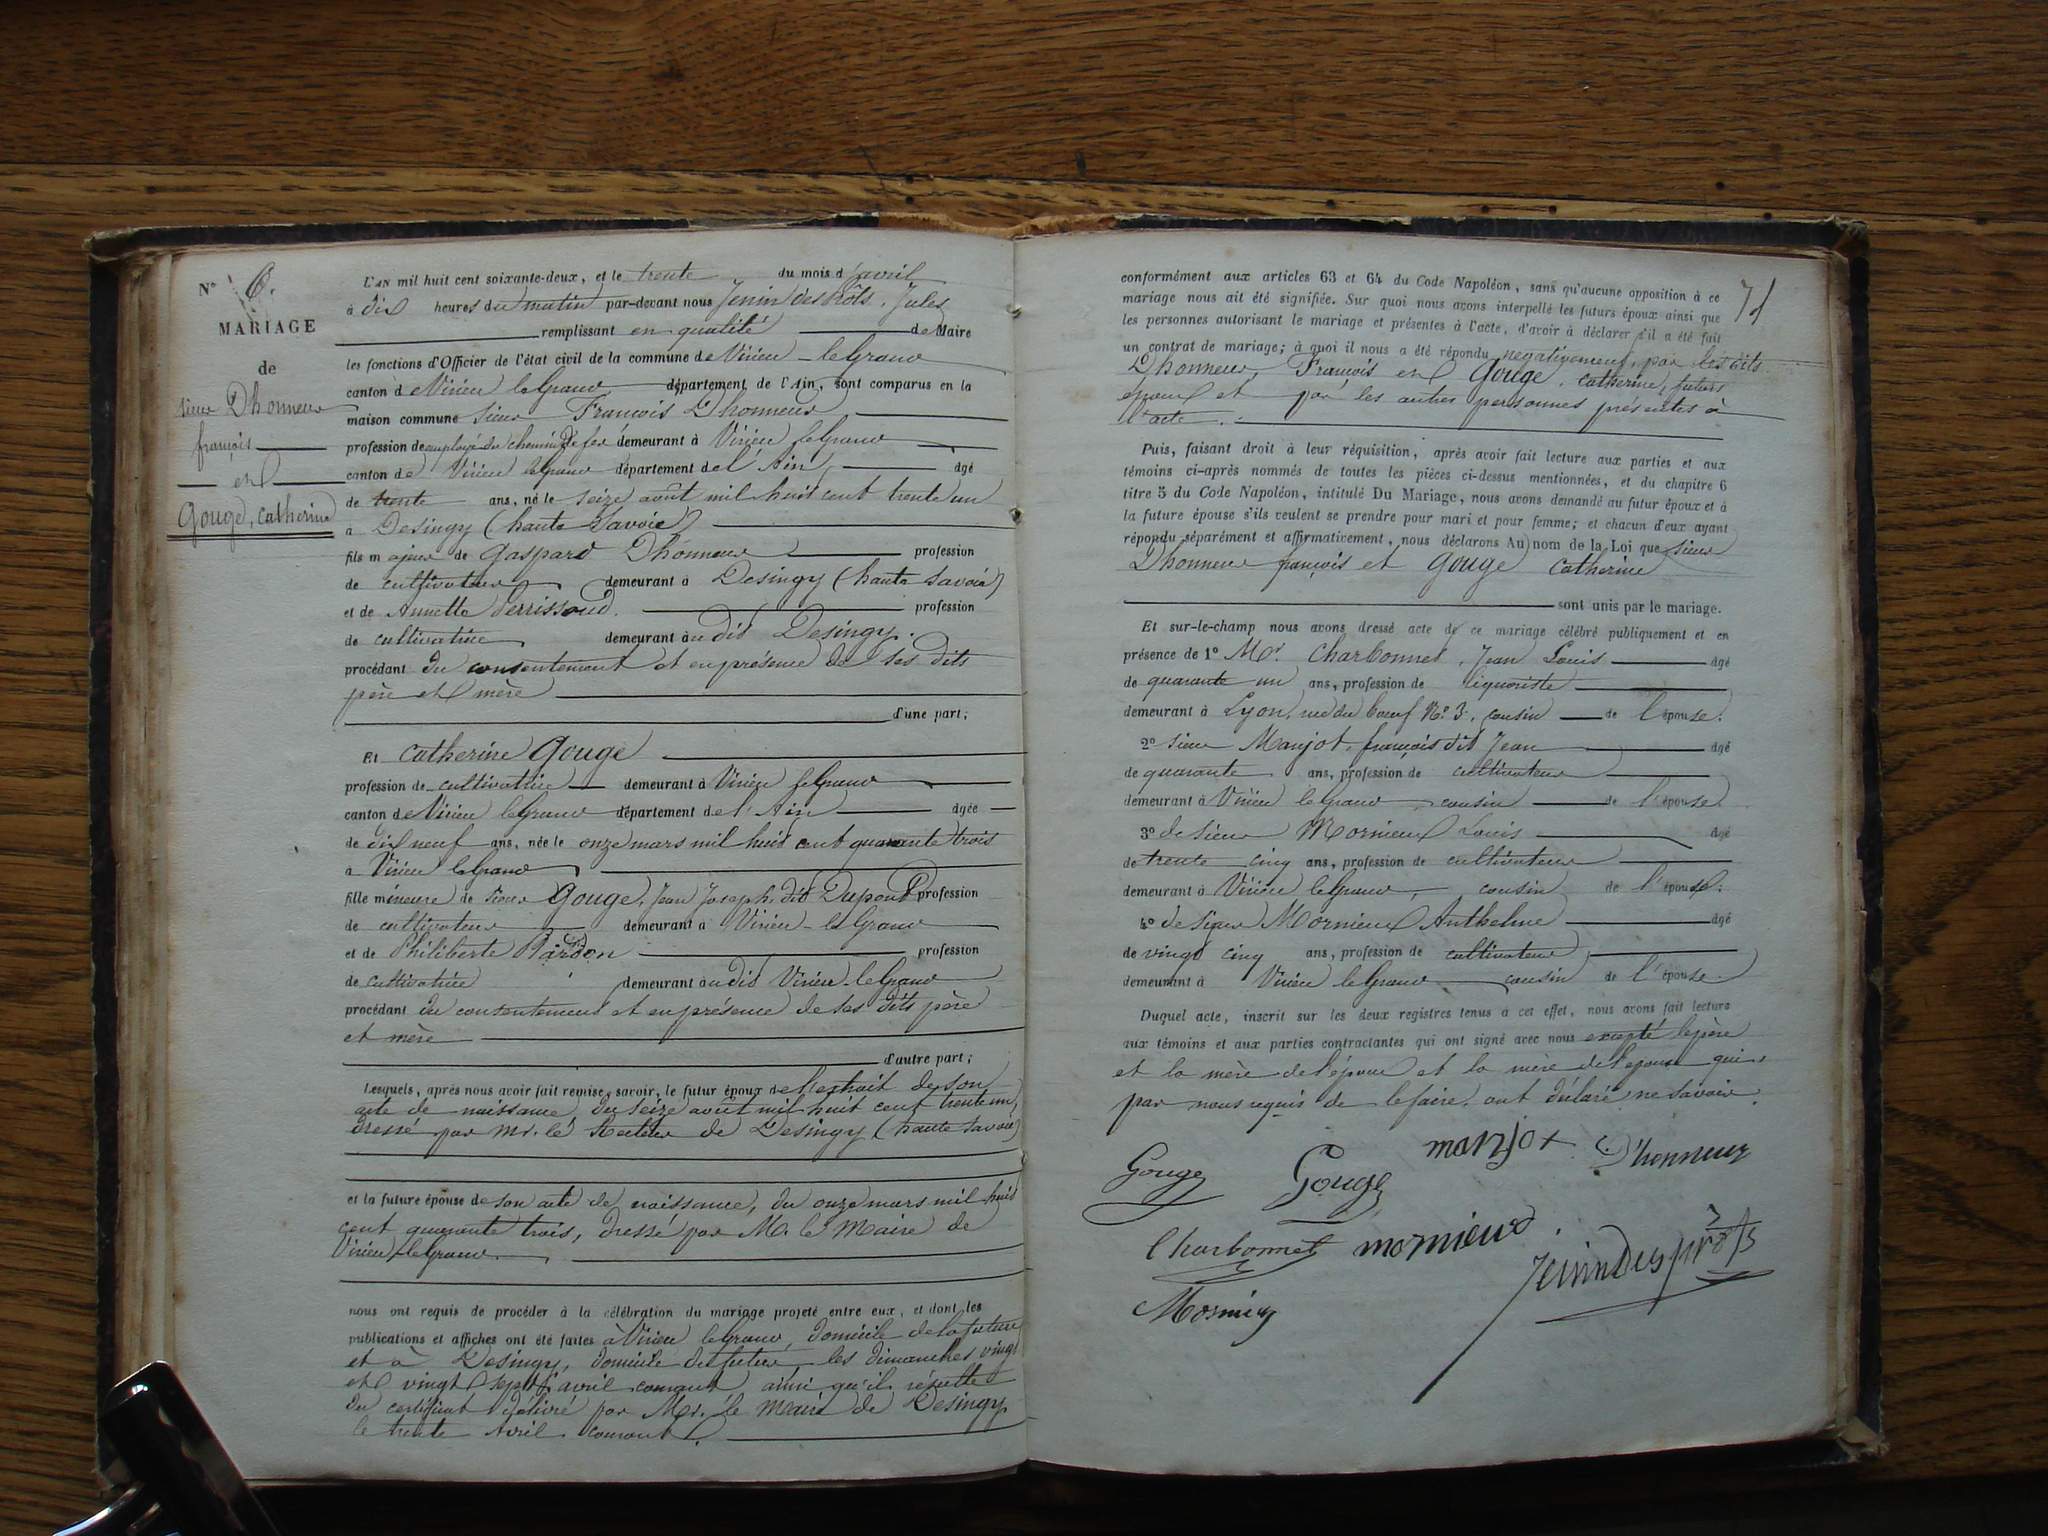 N° 6.
MARIAGE
de
sieur Dhonneur
françois
et
Gouge, Catherine
L'AN mil huit cent soixante-deux, et le trente du mois d'avril
à dix heures du matin par-devant nous Jenin des prôts, Jules
remplissant en qualité de Maire
les fonctions d'Officier de l'état civil de la commune de Virieu-le Grand
canton de Virieu le Grand département de l'Ain, sont comparus en la
maison commune sieur François Dhonneur
profession de employé du chemin de fer demeurant à Virieu le Grand
canton de Virieu le Grand département de l'Ain, âgé
de trente ans, né le seize août mil huit cent trente un
à Desingy (haute Savoie)
fils majeur de Gaspard Dhonneur profession
de cultivateur demeurant à Desingy (haute Savoie)
et de Annette Perrissoud. profession
de cultivatrice demeurant au dit Desingy.
procédant du consentement et en présence de ses dits
père et mère
d'une part;
Et Catherine Gouge
profession de cultivatrice demeurant à Virieu le Grand
canton de Virieu le Grand département de l'Ain âgée
de dix neuf ans, née le onze mars mil huit cent quarante trois
à Virieu le Grand
fille mineure de sieur Gouge, Jean Joseph, dit Dupont profession
de cultivateur demeurant à Virieu-le Grand
et de Philiberte Bardon profession
de cultivatrice demeurant au dit Virieu-le Grand
procédant du consentement et en présence de ses dits père
et mère
d'autre part;
Lesquels, après nous avoir fait remise, savoir, le futur époux de l'extrait de son
acte de naissance, du seize août mil huit cent trente un,
dressé par Mr. le Recteur de Desingy (haute Savoie)
et la future épouse de son acte de naissance, du onze mars mil huit
cent quarante trois, dressé par Mr. le Maire de
Virieu-le Grand.
nous ont requis de procéder à la célébration du mariage projeté entre eux, et dont les
publications et affiches ont été faites à Virieu le Grand, domicile de la future
et à Desingy, domicile du futur, les dimanches vingt
et vingt sept avril courant ainsi qu'il résulte
du certificat délivré par Mr. le Maire de Desingy
le trente Avril courant.
71
conformément aux articles 63 et 64 du Code Napoléon, sans qu'aucune opposition à ce
mariage nous ait été signifiée. Sur quoi nous avons interpellé les futurs époux ainsi que
les personnes autorisant le mariage et présentes à l'acte, d'avoir à déclarer s'il a été fait
un contrat de mariage; à quoi il nous a été répondu négativement, par les dits
Dhonneur, François et Gouge, Catherine, futurs
époux et par les autres personnes présentes à
l'acte.
Puis, faisant droit à leur réquisition, après avoir fait lecture aux parties et aux
témoins ci-après nommés de toutes les pièces ci-dessus mentionnées, et du chapitre 6
titre 5 du Code Napoléon, intitulé Du Mariage, nous avons demandé au futur époux et à
la future épouse s'ils veulent se prendre pour mari et pour femme; et chacun d'eux ayant
répondu séparément et affirmativement, nous déclarons Au nom de la Loi que sieur
Dhonneur françois et Gouge Catherine
sont unis par le mariage.
Et sur-le-champ nous avons dressé acte de ce mariage célébré publiquement et en
présence de 1° Mr. Charbonnet, Jean Louis âgé
de quarante un ans, profession de liquoriste
demeurant à Lyon, rue du bœuf N° 3, cousin de l'épouse.
2° sieur Manjot, françois dit Jean âgé
de quarante ans, profession de cultivateur
demeurant à Virieu le Grand cousin de l'épouse
3° de sieur Mornieux Louis âgé
de trente cinq ans, profession de cultivateur
demeurant à Virieu le Grand, cousin de l'épouse.
4° de sieur Mornieux Anthelme âgé
de vingt cinq ans, profession de cultivateur
demeurant à Virieu le Grand cousin de l'épouse.
Duquel acte, inscrit sur les deux registres tenus à cet effet, nous avons fait lecture
aux témoins et aux parties contractantes qui ont signé avec nous excepté le père
et la mère de l'époux et la mère de l'épouse qui,
par nous requis de le faire, ont déclaré ne savoir.
Gouge Gouge manjot Dhonneur
Charbonnet mornieux
Jenin Des prôts
Mornieux